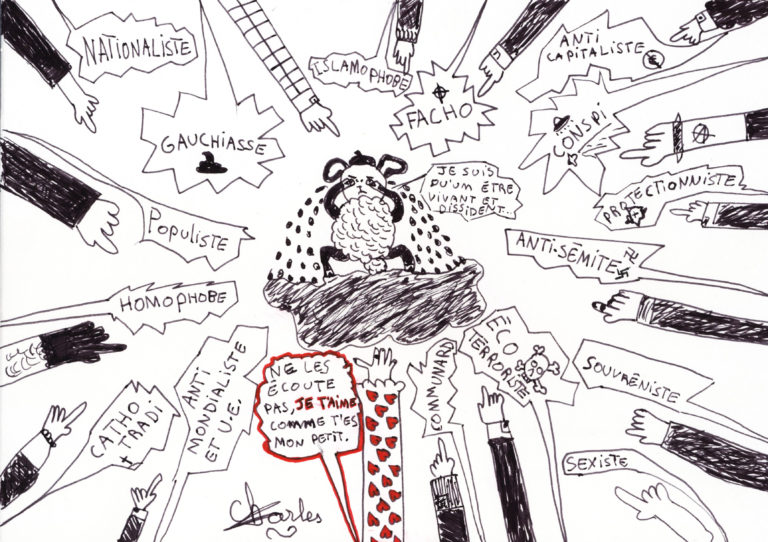 NATIONALISTE
GAUCHIASSE
ISLAMOPHOBE
FACHO
ANTI
CAPITALISTE
CONSPI
PROTECTIONNISTE
JE SUIS
QU'UM ÊTRE
VIVANT ET
DISSIDENT...
POPULISTE
ANTI-SÉMITE
HOMOPHOBE
ANTI
MONDIALISTE
ET U.E.
CATHO
TRADI
NE LES
ÉCOUTE
PAS, JE T'AIME
COMME T'ES
MON PETIT.
COMMUNARD
ÉCO
TERRORISTE
SOUVRÉNISTE
SEXISTE
Charles